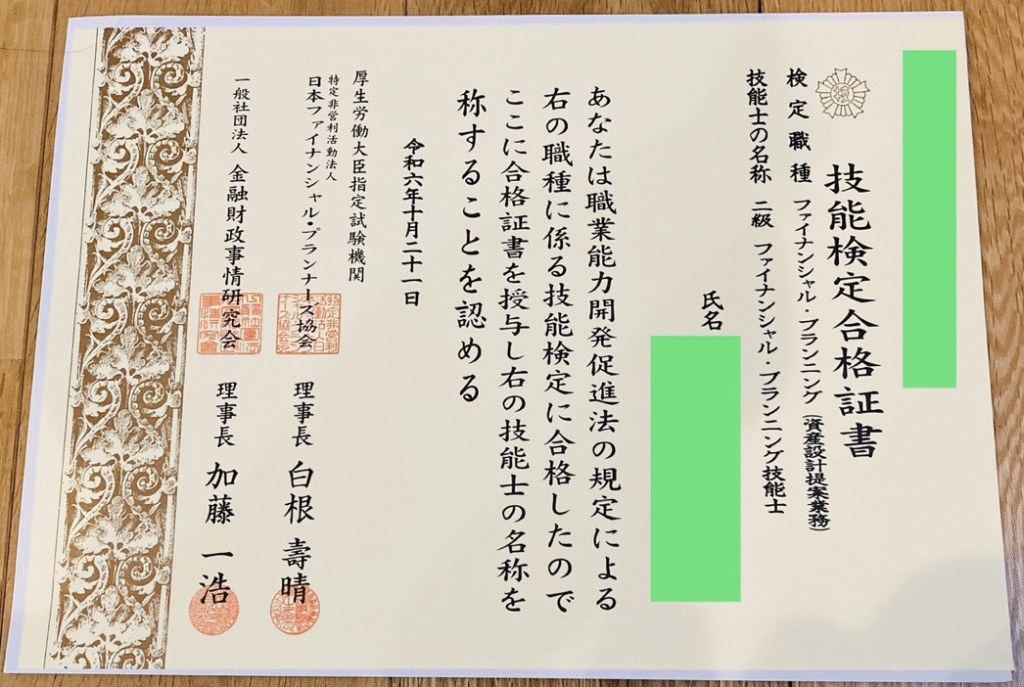 技能検定合格証書
検定職種 ファイナンシャル・プランニング（資産設計提案業務）
技能士の名称 二級 ファイナンシャル・プランニング技能士
氏名
あなたは職業能力開発促進法の規定による
右の職種に係る技能検定に合格したので
ここに合格証書を授与し右の技能士の名称を
称することを認める
令和六年十月二十一日
厚生労働大臣指定試験機関
特定非営利活動法人
日本ファイナンシャル・プランナーズ協会 理事長 白根 壽晴
一般社団法人 金融財政事情研究会 理事長 加藤 一浩